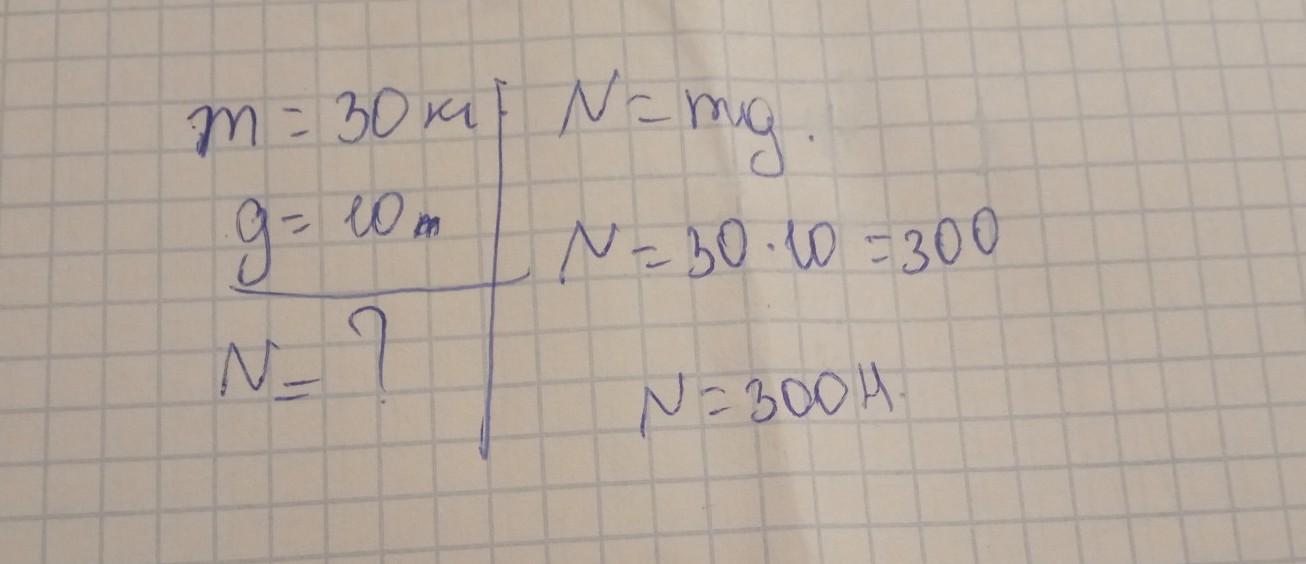 m = 30 кг
g = 10 м
N = ?
N = mg.
N = 30 · 10 = 300
N = 300 Н.